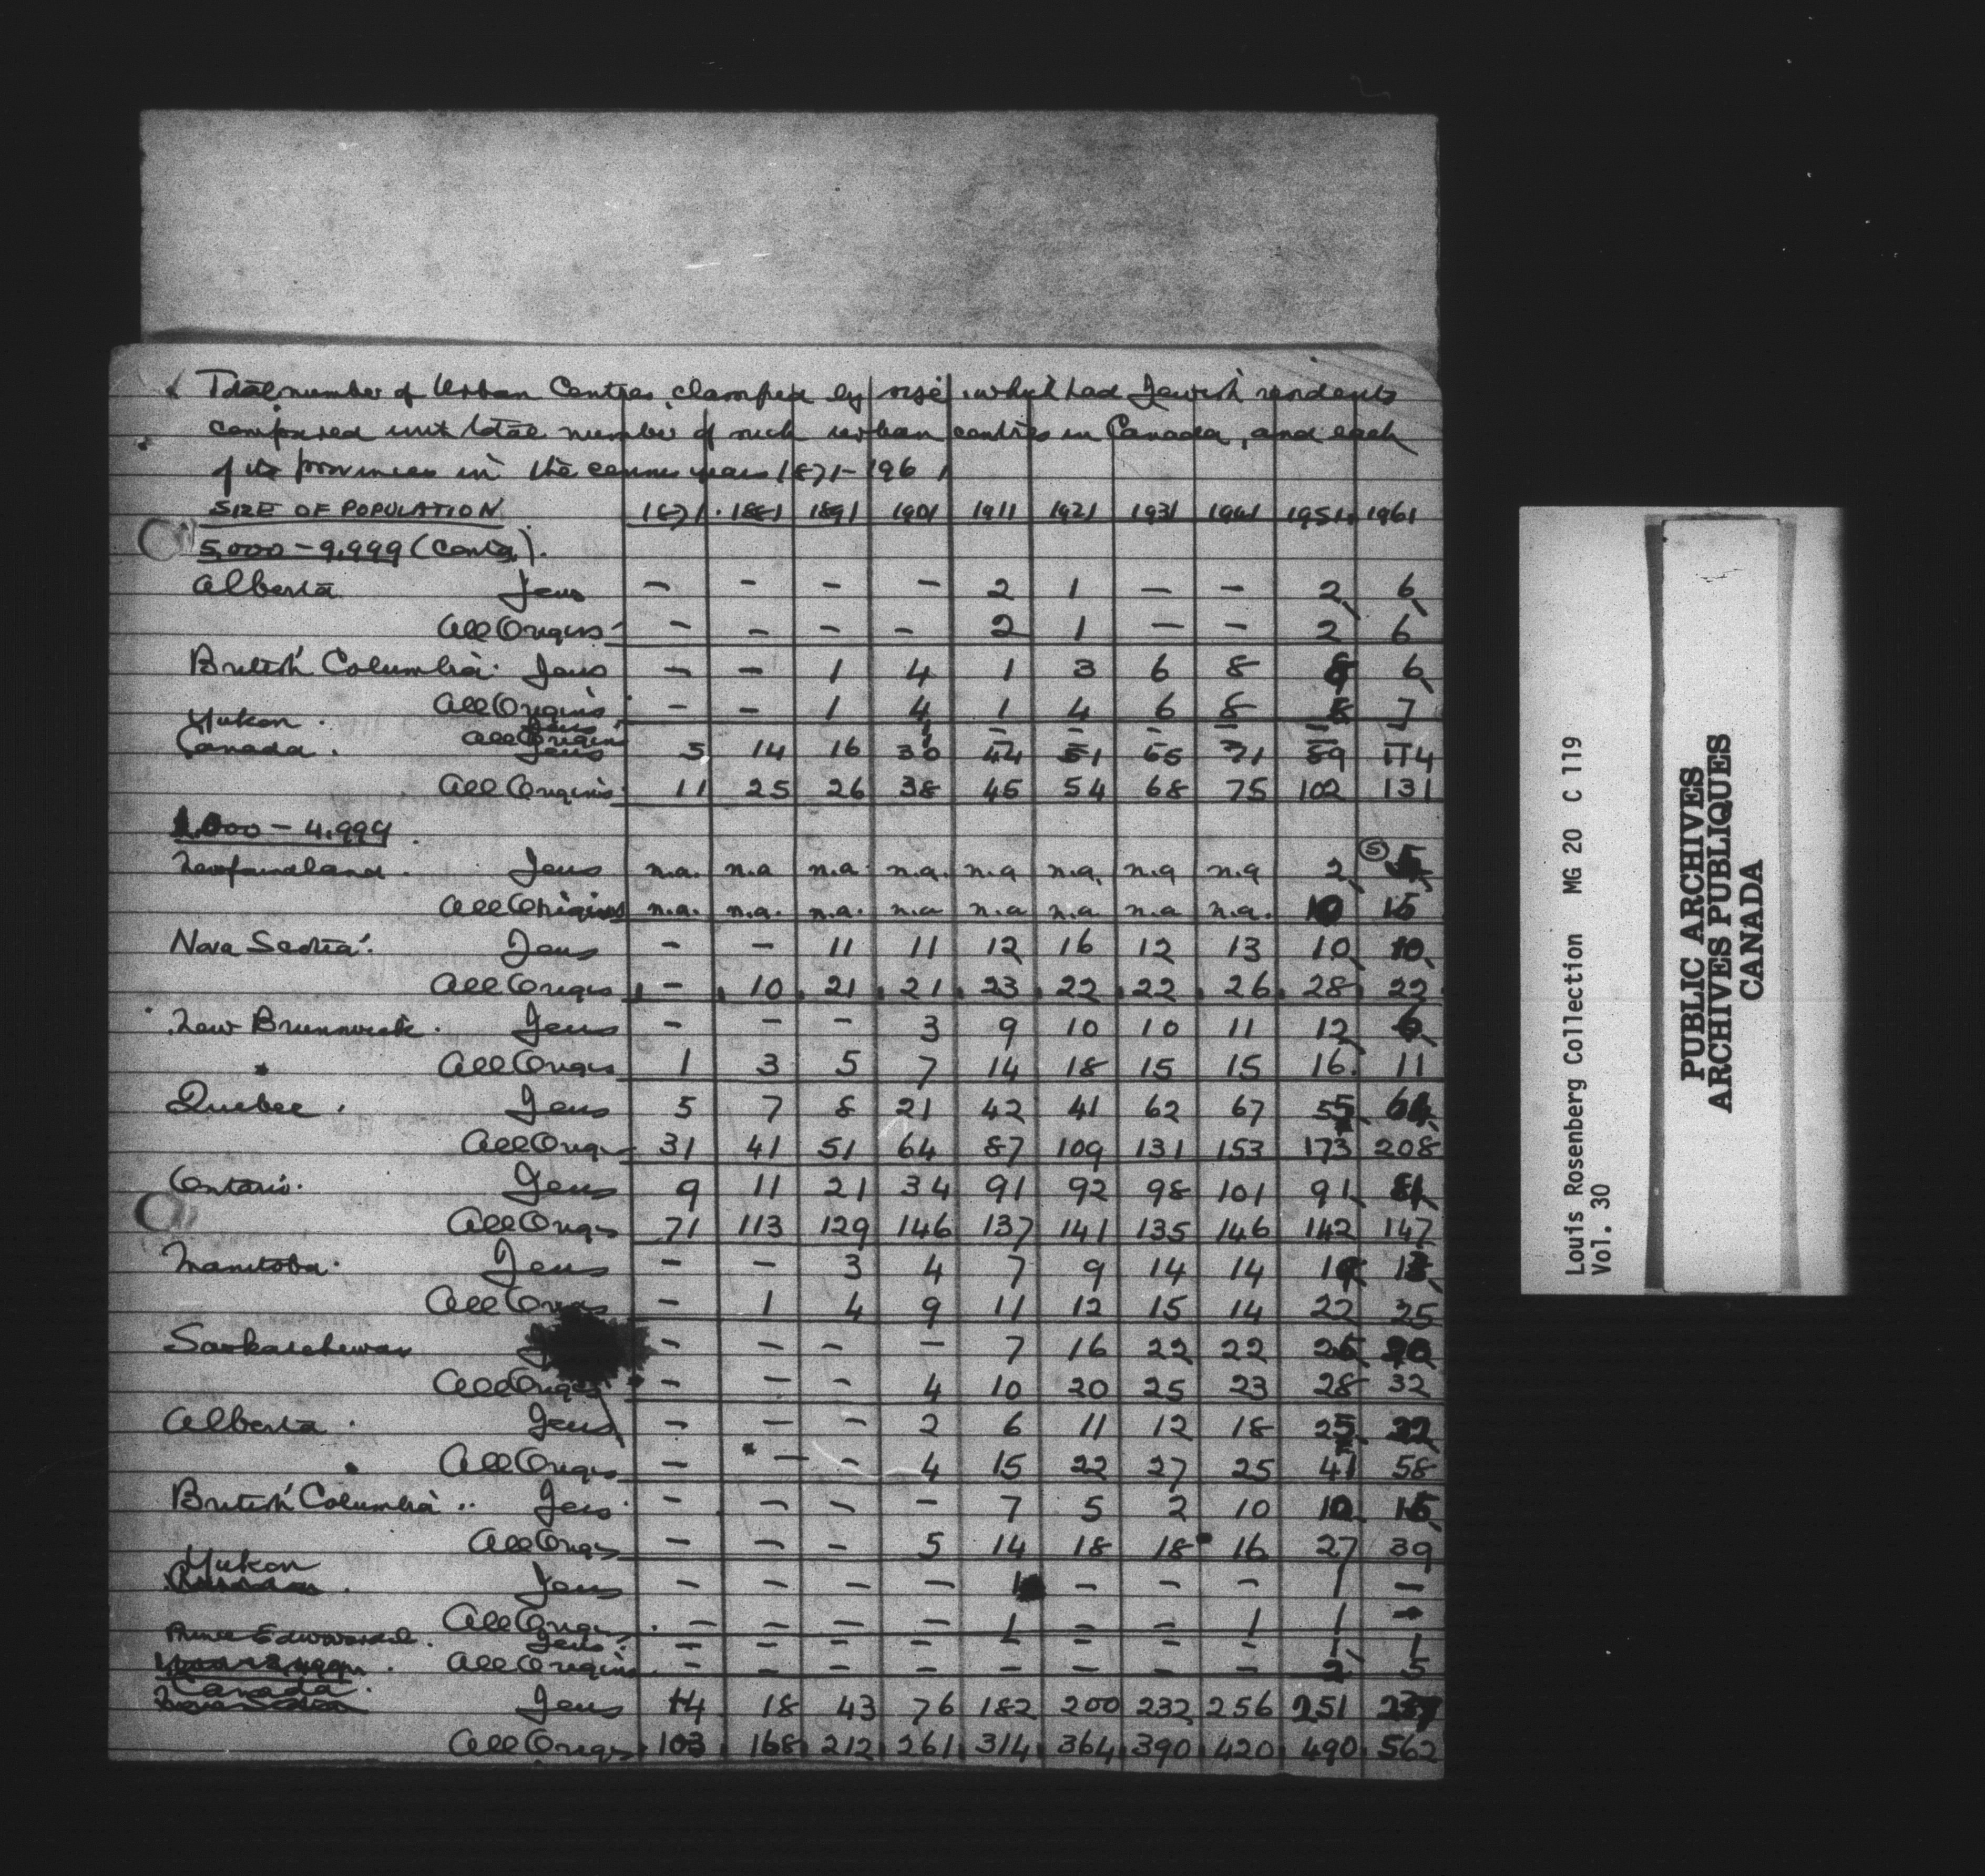 Total number of Urban Centres, classified by size, which had Jewish residents
compared with total number of such urban centres in Canada, and each
of its provinces in the census years 1871-1961
SIZE OF POPULATION 1871 1881 1891 1901 1911 1921 1931 1941 1951 1961
5,000-9,999 (Contd).
Alberta Jews - - - - 2 1 - - 2 6
All Origins - - - - 2 1 - - 2 6
British Columbia Jews - - 1 4 1 3 6 8 6
All Origins - - 1 4 1 4 6 8 8 7
Yukon Jews - - - - - -
All Origins
Canada Jews 5 14 16 30 44 51 65 71 89 114
All Origins 11 25 26 38 45 54 68 75 102 131
1,000-4,999
Newfoundland Jews n.a. n.a n.a n.a. n.a n.a. n.a n.a 2 (5) 5
All Origins n.a. n.a. n.a. n.a n.a n.a. n.a n.a. 10 15
Nova Scotia Jews - - 11 11 12 16 12 13 10 10
All Origins - 10 21 21 23 22 22 26 28 22
New Brunswick Jews - - - 3 9 10 10 11 12 6
All Origins 1 3 5 7 14 18 15 15 16 11
Quebec Jews 5 7 8 21 42 41 62 67 55 64
All Origins 31 41 51 64 87 109 131 153 173 208
Ontario Jews 9 11 21 34 91 92 98 101 91 81
All Origins 71 113 129 146 137 141 135 146 142 147
Manitoba Jews - - 3 4 7 9 14 14 13
All Origins - 1 4 9 11 12 15 14 22 25
Saskatchewan - - - - 7 16 22 22 25 20
All Origins - - - 4 10 20 25 23 28 32
Alberta Jews - - - 2 6 11 12 18 25 22
All Origins - - - 4 15 22 27 25 41 58
British Columbia Jews - - - - 7 5 2 10 10 15
All Origins - - - 5 14 18 18 16 27 39
Yukon
Jews - - - - 1 - - - 1 -
All Origins - - - - 1 - - 1 1 -
Prince Edward Jews - - - - - - - - 1 1
All Origins - - - - - - - - 2 5
Canada
Jews 14 18 43 76 182 200 232 256 251 237
All Origins 103 168 212 261 314 364 390 420 490 562
Louis Rosenberg Collection MG 20 C 119
Vol. 30
PUBLIC ARCHIVES
ARCHIVES PUBLIQUES
CANADA